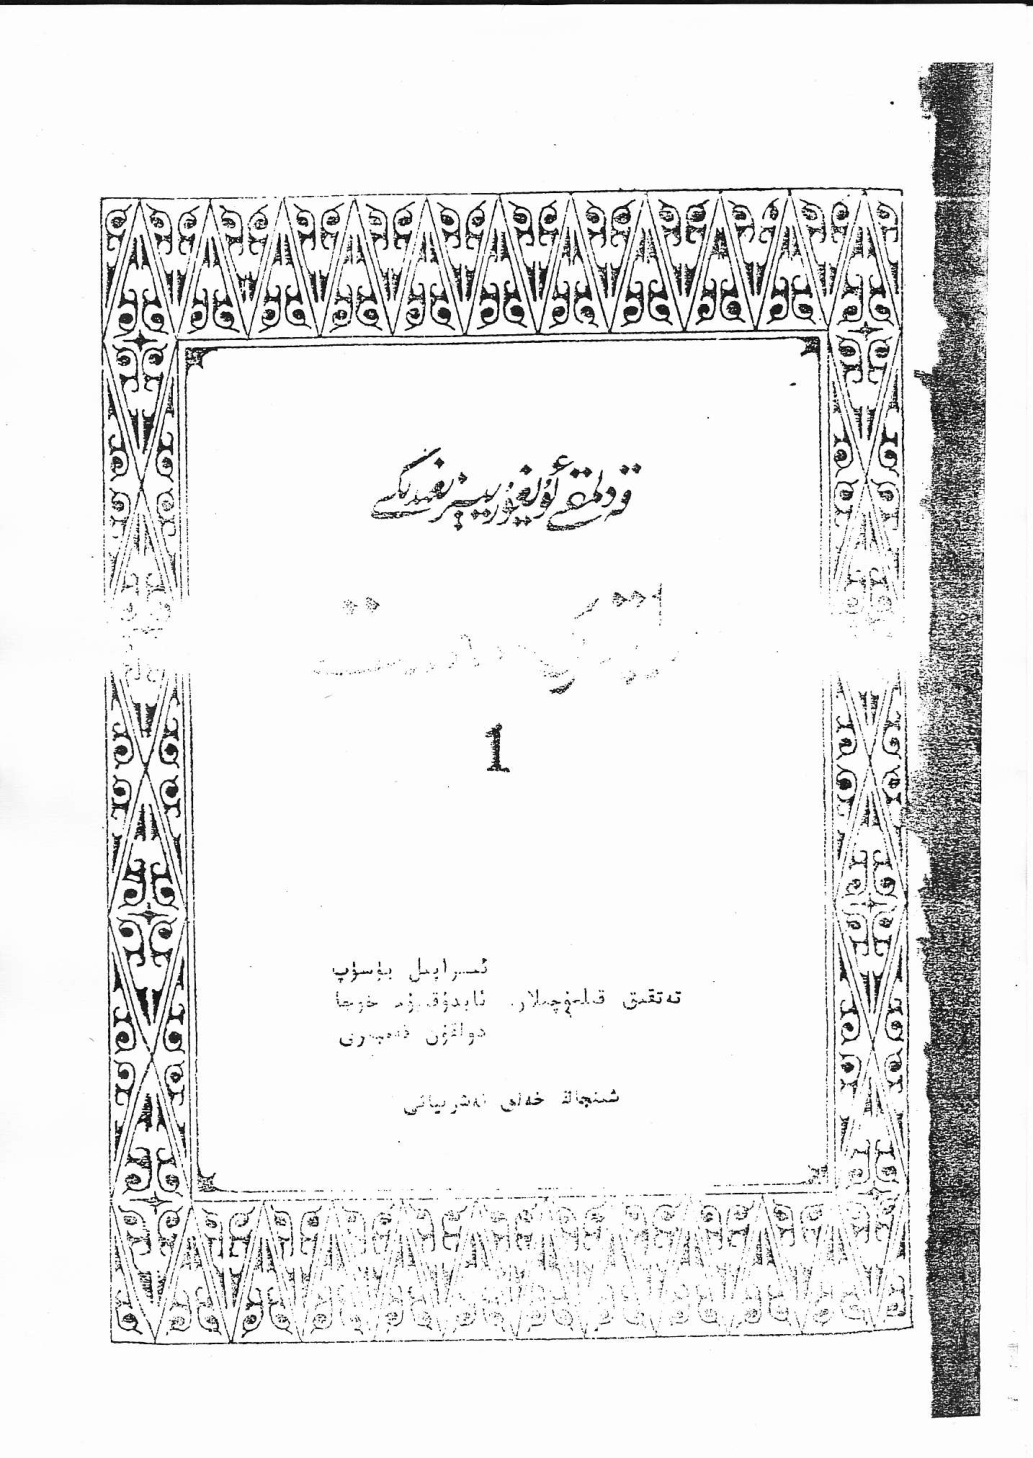 قەدىمقى ئۇيغۇر يېزىقىدىكى
1
ئىسراپىل يۈسۈپ
تەتقىق قىلغۇچىلار: ئابدۇقەييۇم خوجا
دولقۇن قەمبەرى
شىنجاڭ خەلق نەشرىياتى